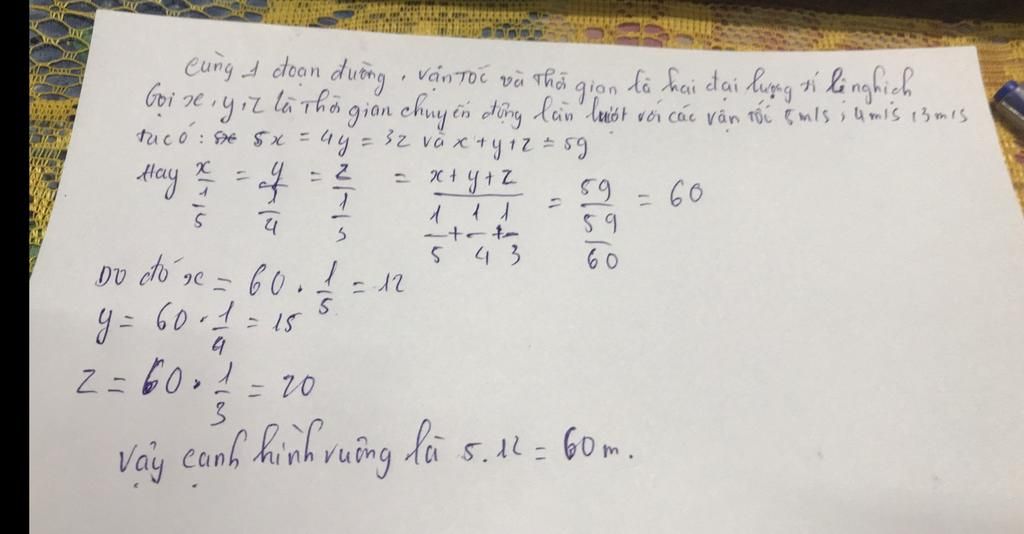 Cùng 1 đoạn đường, vận tốc và thời gian là hai đại lượng tỉ lệ nghịch
Gọi x, y, z là thời gian chuyển động lần lượt với các vận tốc 5m/s; 4m/s; 3m/s
ta có: 5x = 4y = 3z và x+y+z = 59
Hay x/(1/5) = y/(1/4) = z/(1/3) = (x+y+z)/(1/5 + 1/4 + 1/3) = 59/(59/60) = 60
Do đó x = 60 . 1/5 = 12
y = 60 . 1/4 = 15
z = 60 . 1/3 = 20
Vậy cạnh hình vuông là 5.12 = 60m.